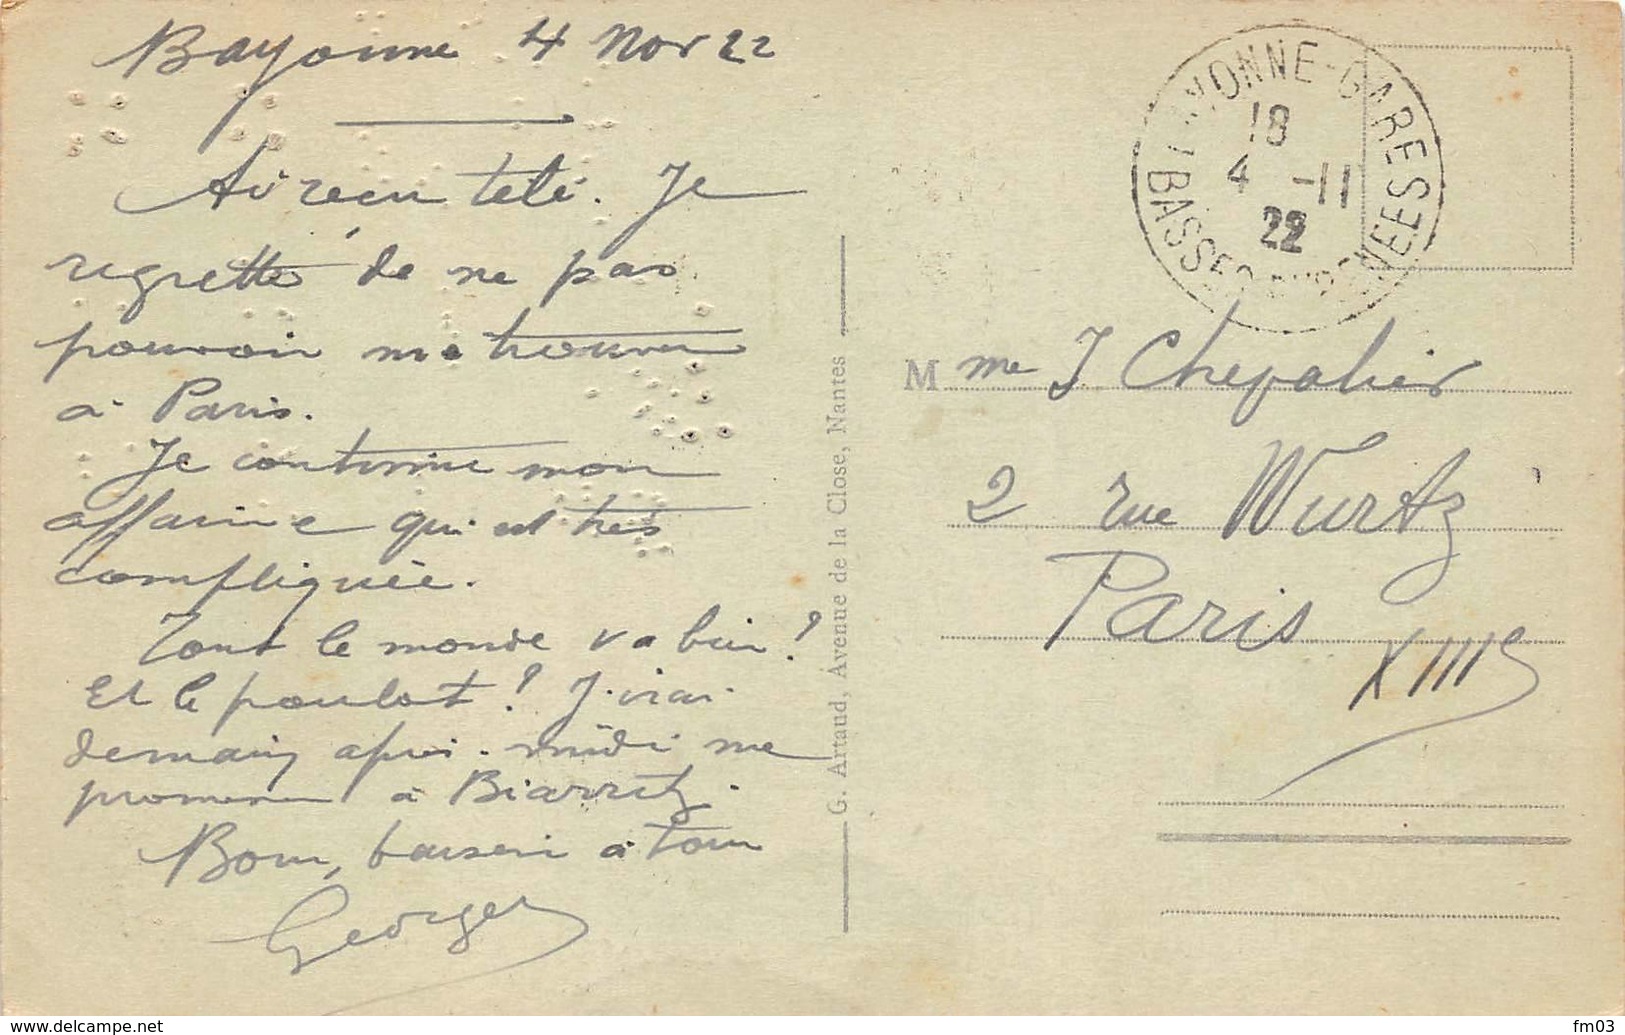 Bayonne 4 Nov 22
Ai reçu télé. Je
regrette de ne pas
pouvoir me trouver
à Paris.
Je continue mon
affaire qui est très
compliquée.
Tout le monde va bien ?
Et le poulot ? J'irai
demain après-midi me
promener à Biarritz.
Bons baisers à tous
Georges
G. Artaud, Avenue de la Close, Nantes
BAYONNE-GARE
18
4 -11
22
BASSES PYRENEES
Mme J Chevalier
2 rue Wurtz
Paris
XIIIe
www.delcampe.net
fm03